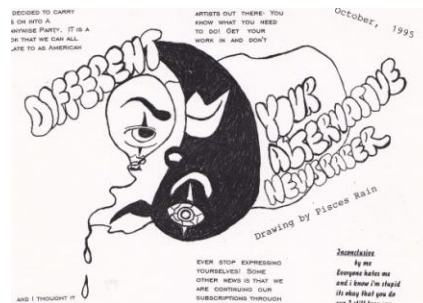 DECIDED TO CARRY
S ON INTO A
NYWISE PARTY. IT IS A
OK THAT WE CAN ALL
ATE TO AS AMERICAN
ARTISTS OUT THERE. YOU
KNOW WHAT YOU NEED
TO DO! GET YOUR
WORK IN AND DON'T
October, 1995
DIFFERENT
YOUR
ALTERNATIVE
NEWSPAPER
Drawing by Pisces Rain
AND I THOUGHT IT
EVER STOP EXPRESSING
YOURSELVES! SOME
OTHER NEWS IS THAT WE
ARE CONTINUING OUR
SUBSCRIPTIONS THROUGH
Inconclusive
by me
Everyone hates me
and i know i'm stupid
its okay that you do